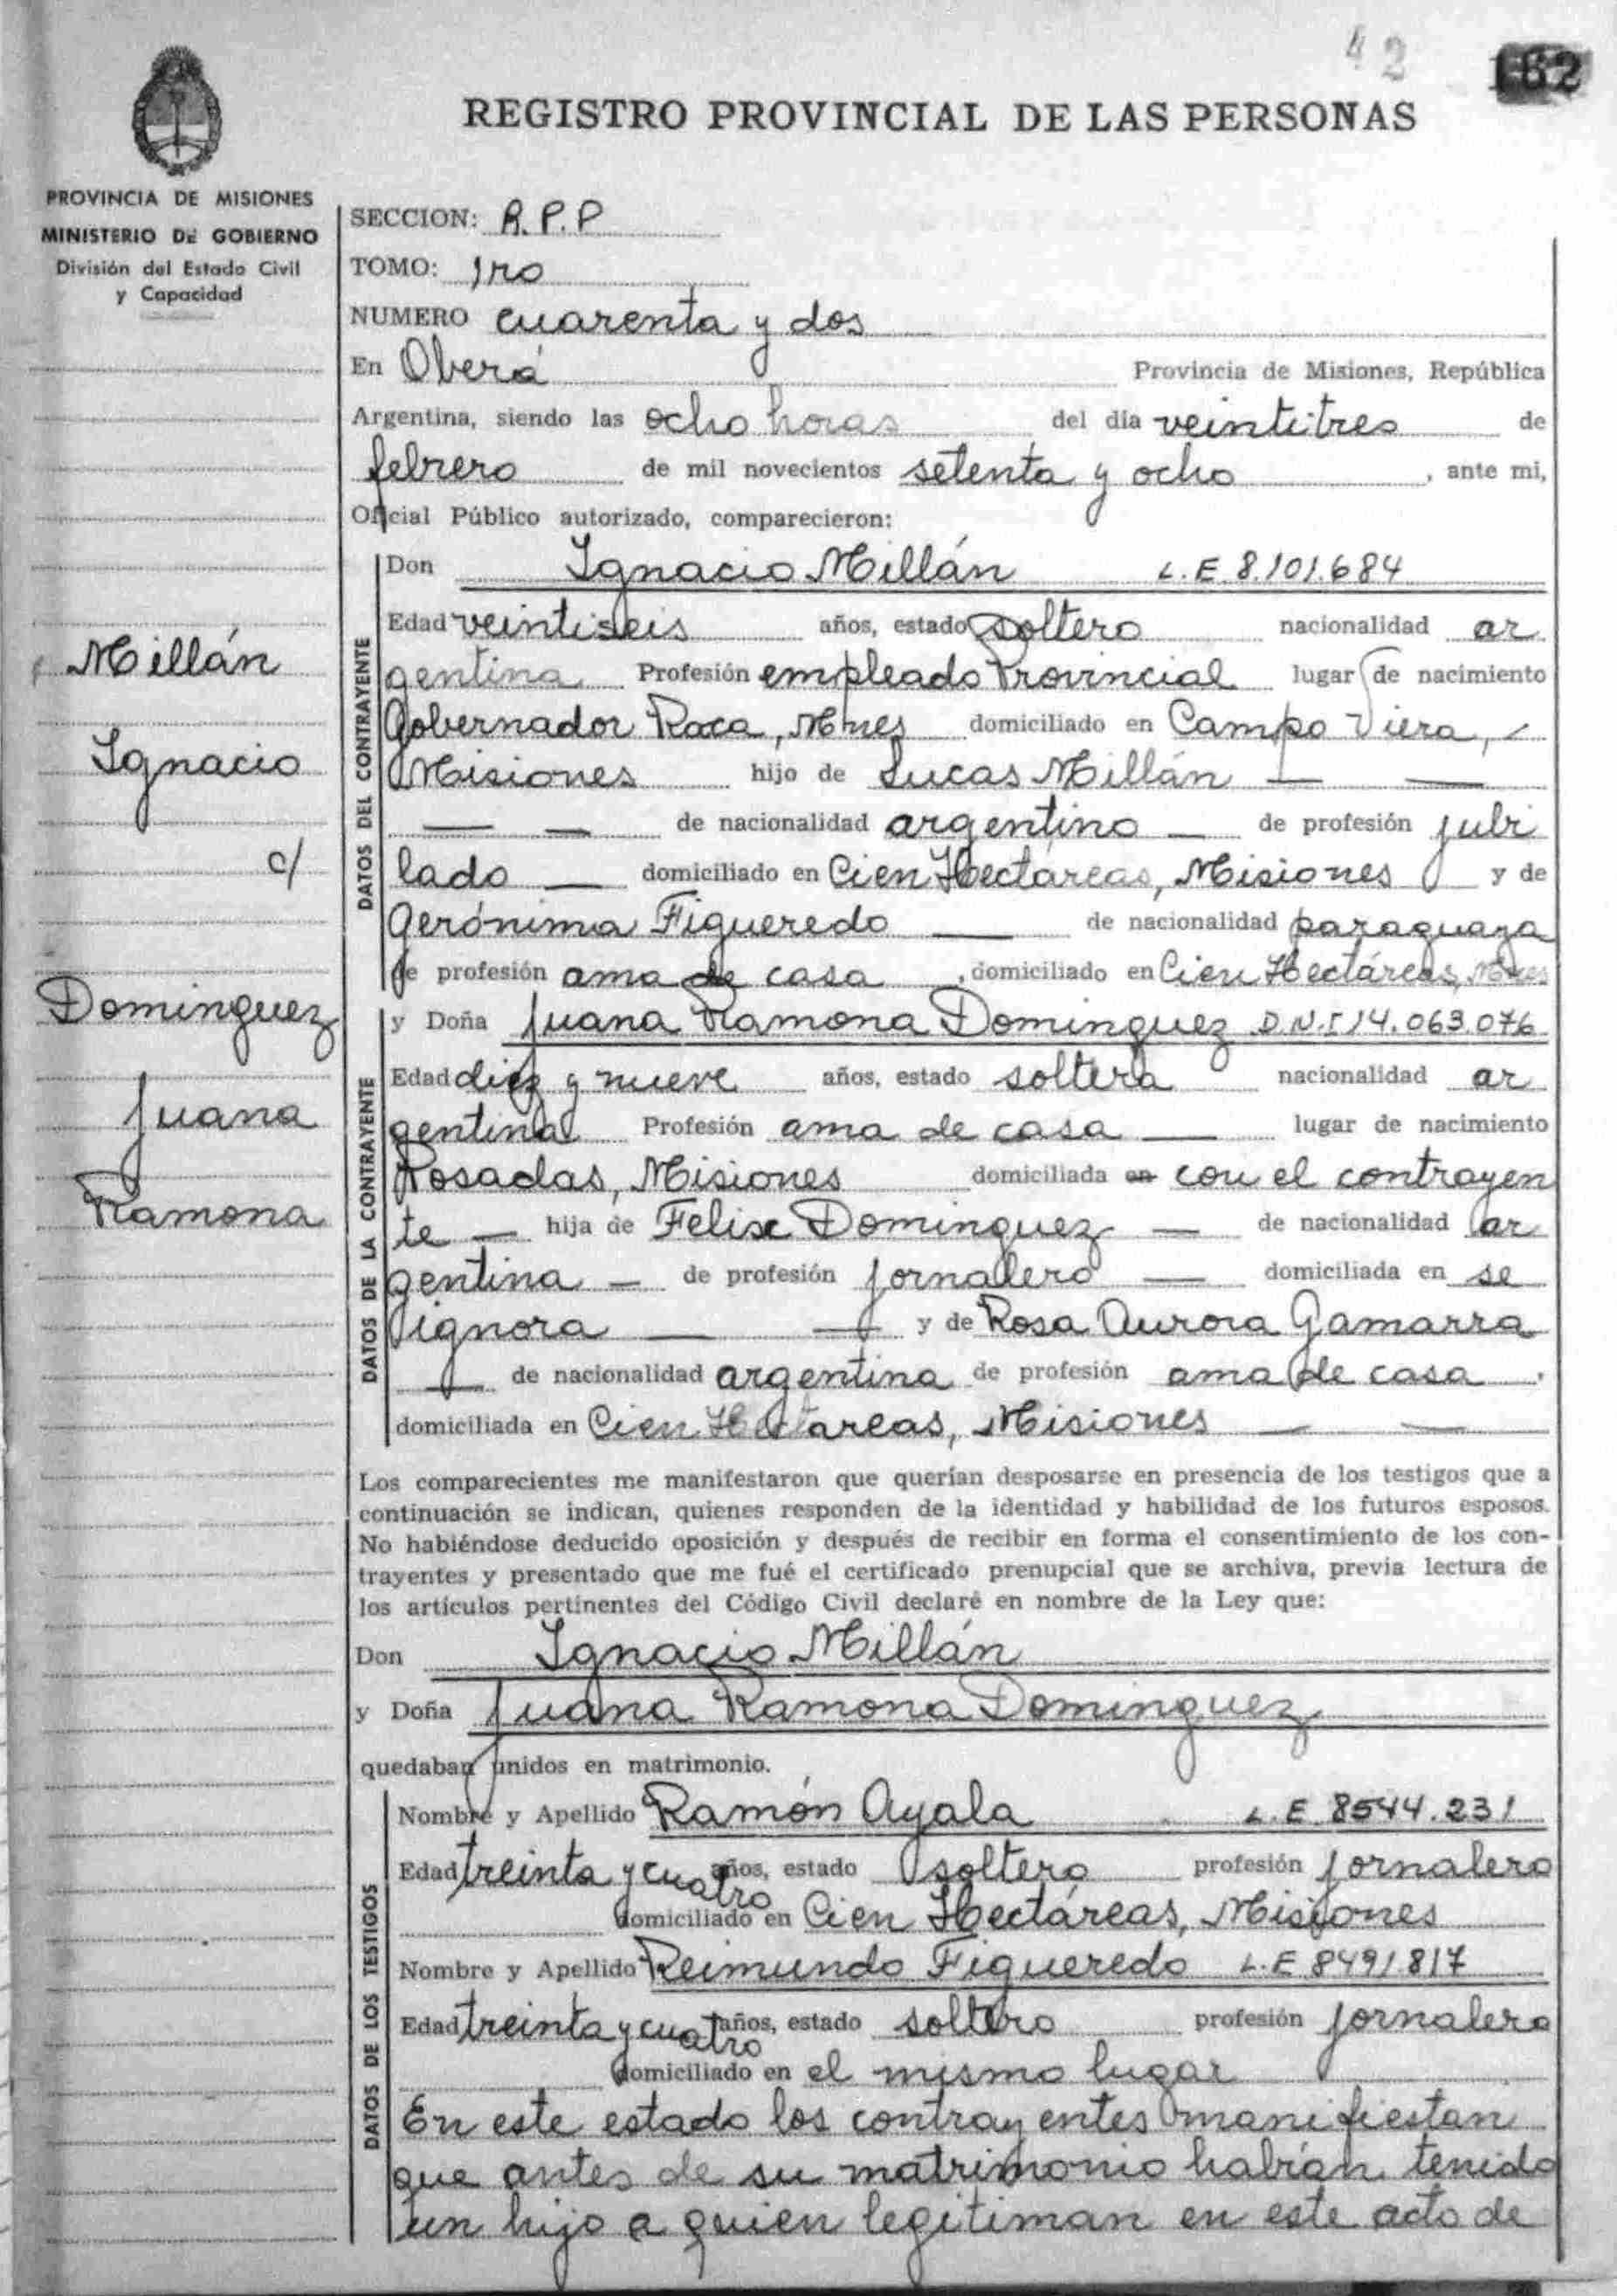 42
62
REGISTRO PROVINCIAL DE LAS PERSONAS
PROVINCIA DE MISIONES
MINISTERIO DE GOBIERNO
División del Estado Civil
y Capacidad
Millán
Ignacio
c/
Dominguez
Juana
Ramona
SECCION: R.P.P
TOMO: 1ro
NUMERO cuarenta y dos
En Oberá Provincia de Misiones, República
Argentina, siendo las ocho horas del día veintitres de
febrero de mil novecientos setenta y ocho, ante mi,
Oficial Público autorizado, comparecieron:
DATOS DEL CONTRAYENTE
Don Ignacio Millán L.E 8.101.684
Edad veintiseis años, estado soltero nacionalidad ar
gentina Profesión empleado Provincial lugar de nacimiento
Gobernador Roca, Mnes domiciliado en Campo Viera,
Misiones hijo de Lucas Millán — —
— — de nacionalidad argentino — de profesión jubi
lado — domiciliado en Cien Hectareas, Misiones y de
Gerónima Figueredo — de nacionalidad paraguaya
de profesión ama de casa, domiciliado en Cien Hectáreas, Mnes
DATOS DE LA CONTRAYENTE
y Doña Juana Ramona Dominguez D.N.I 14.063.076
Edad diez y nueve años, estado soltera nacionalidad ar
gentina Profesión ama de casa — lugar de nacimiento
Posadas, Misiones domiciliada en con el contrayen
te — hija de Felix Dominguez — de nacionalidad ar
gentina — de profesión jornalero — domiciliada en se
ignora — — y de Rosa Aurora Gamarra
— de nacionalidad argentina de profesión ama de casa.
domiciliada en Cien Hectareas, Misiones — —
Los comparecientes me manifestaron que querían desposarse en presencia de los testigos que a
continuación se indican, quienes responden de la identidad y habilidad de los futuros esposos.
No habiéndose deducido oposición y después de recibir en forma el consentimiento de los con-
trayentes y presentado que me fué el certificado prenupcial que se archiva, previa lectura de
los artículos pertinentes del Código Civil declaré en nombre de la Ley que:
Don Ignacio Millán
y Doña Juana Ramona Dominguez
quedaban unidos en matrimonio.
DATOS DE LOS TESTIGOS
Nombre y Apellido Ramón Ayala L.E 8544.231
Edad treinta y cuatro años, estado soltero profesión jornalero
domiciliado en Cien Hectáreas, Misiones
Nombre y Apellido Reimundo Figueredo L.E 8491817
Edad treinta y cuatro años, estado soltero profesión jornalero
domiciliado en el mismo lugar
En este estado los contrayentes manifiestan
que antes de su matrimonio habían tenido
un hijo a quien legitiman en este acto de